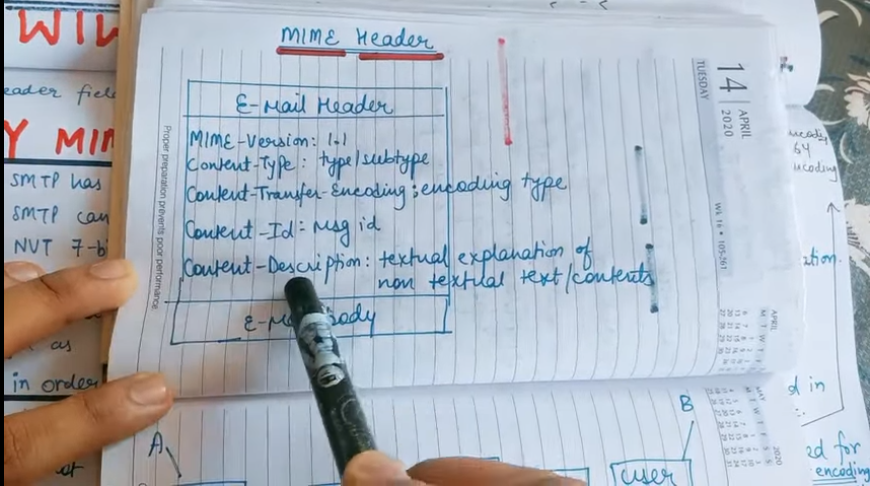 WIL
eader fiel
Y MIM
SMTP has
SMTP can
NVT 7-b
as
in order
MIME Header
E-Mail Header
MIME-Version: 1.1
Content-Type: type/subtype
Content-Transfer-Encoding: encoding type
Content-Id: msg id
Content-Description: textual explanation of
non textual text/contents
E-Ma Body
Proper preparation prevents poor performance
TUESDAY
14
APRIL
2020
WK 16 • 105-261
APRIL
MAY
2020
A
B
user
64
ncoding
ation.
d in
ed for
encoding